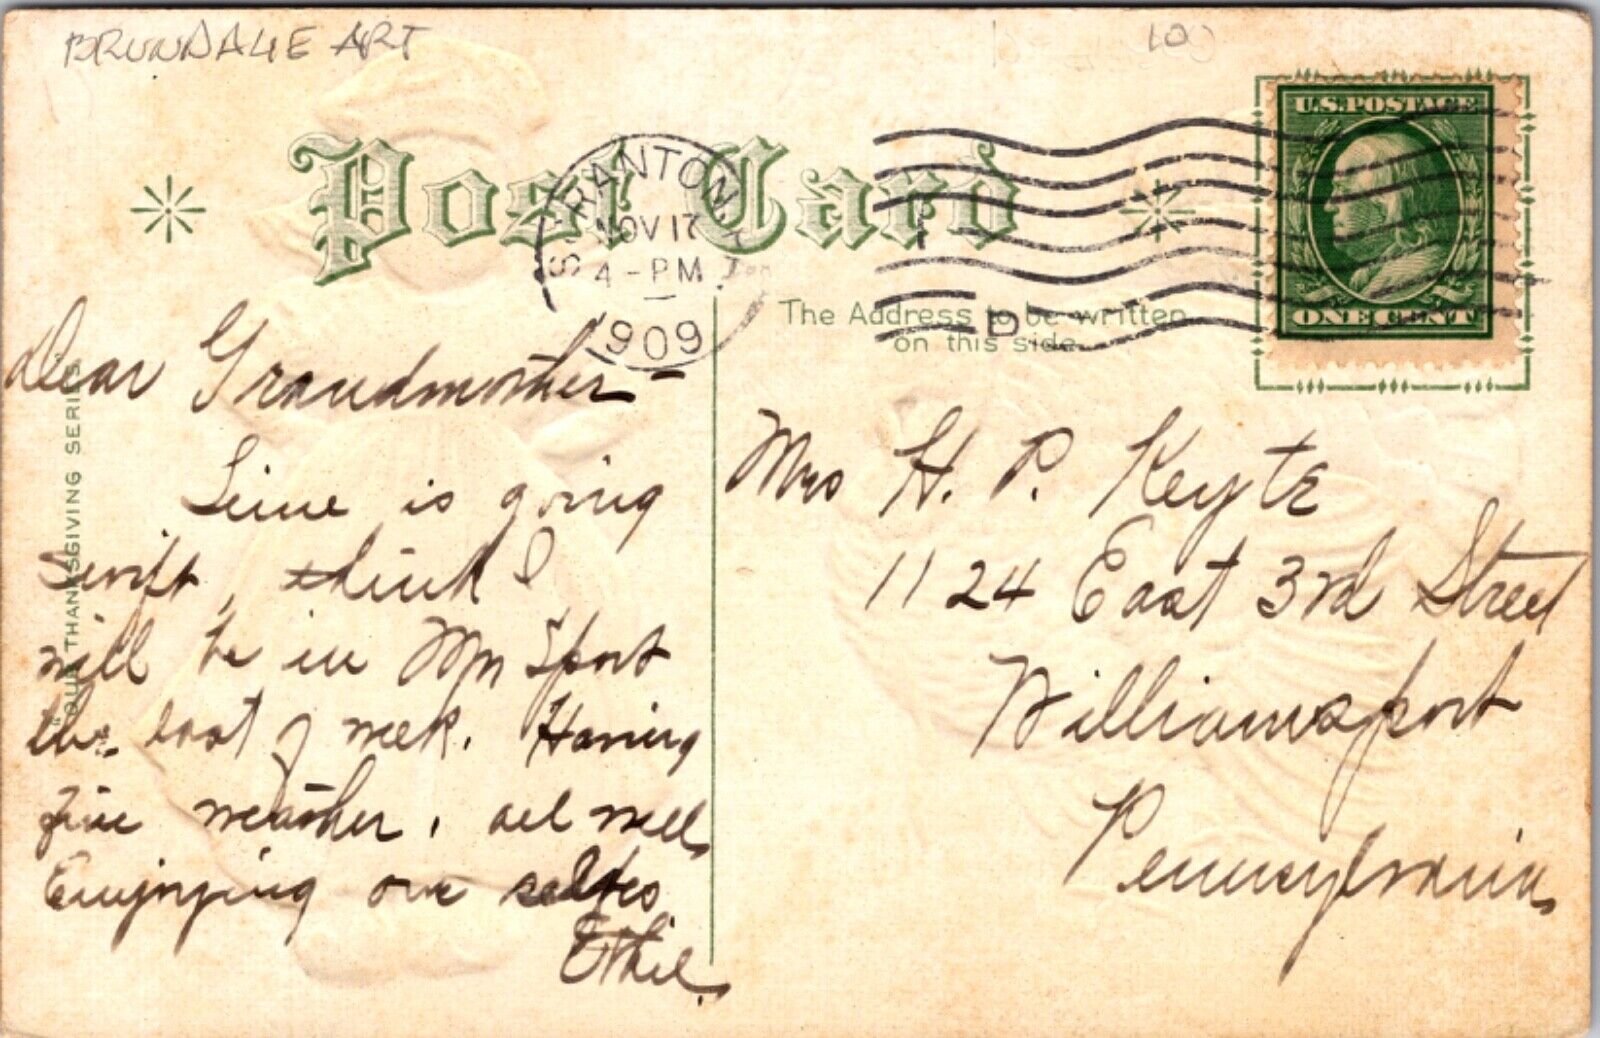 BRUNDAGE ART
10
Post Card
SCRANTON,
NOV 17
4-PM
1909
D
U.S.POSTAGE
ONE CENT
The Address to be written
on this side.
"OUR THANKSGIVING SERIES
Dear Grandmother-
is going
Swift, think I
will be in Wm Sport
the last of week. Having
fine weather, all well
Enjoying our selves
Ethel.
Mrs H. P. Keyte
1124 East 3rd Street
Williamsport
Pennsylvania